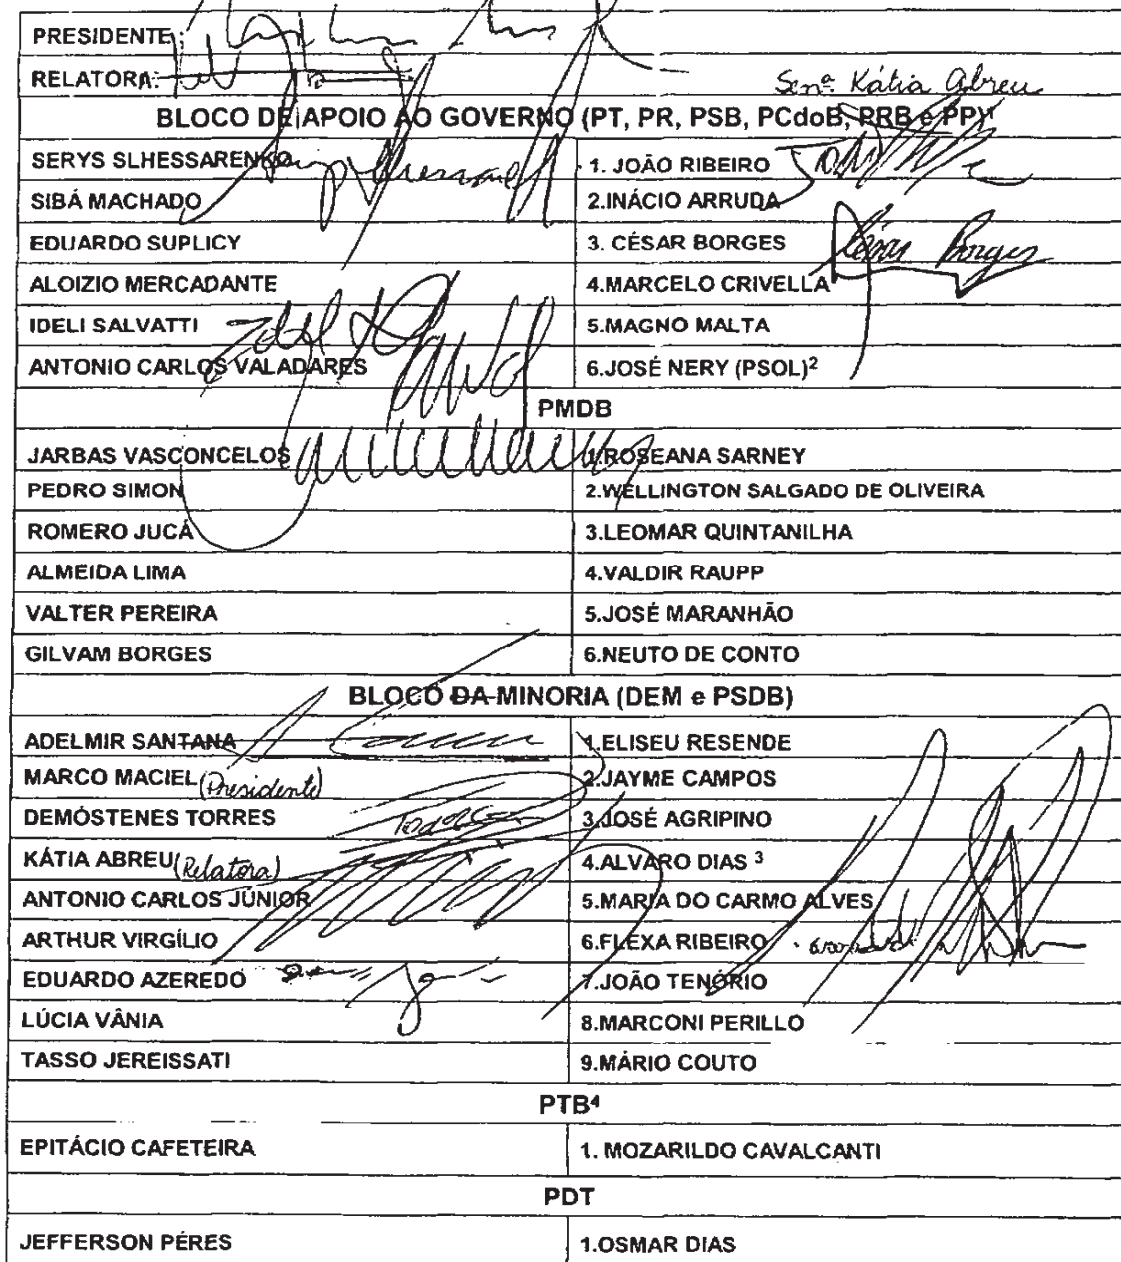 PRESIDENTE:
RELATORA: Senª Kátia Abreu
BLOCO DE APOIO AO GOVERNO (PT, PR, PSB, PCdoB, PRB e PP)
SERYS SLHESSARENKO 1. JOÃO RIBEIRO
SIBÁ MACHADO 2.INÁCIO ARRUDA
EDUARDO SUPLICY 3. CÉSAR BORGES César Borges
ALOIZIO MERCADANTE 4.MARCELO CRIVELLA
IDELI SALVATTI 5.MAGNO MALTA
ANTONIO CARLOS VALADARES 6.JOSÉ NERY (PSOL)²
PMDB
JARBAS VASCONCELOS 1.ROSEANA SARNEY
PEDRO SIMON 2.WELLINGTON SALGADO DE OLIVEIRA
ROMERO JUCÁ 3.LEOMAR QUINTANILHA
ALMEIDA LIMA 4.VALDIR RAUPP
VALTER PEREIRA 5.JOSÉ MARANHÃO
GILVAM BORGES 6.NEUTO DE CONTO
BLOCO DA MINORIA (DEM e PSDB)
ADELMIR SANTANA 1.ELISEU RESENDE
MARCO MACIEL (Presidente) 2.JAYME CAMPOS
DEMÓSTENES TORRES 3.JOSÉ AGRIPINO
KÁTIA ABREU (Relatora) 4.ALVARO DIAS ³
ANTONIO CARLOS JÚNIOR 5.MARIA DO CARMO ALVES
ARTHUR VIRGÍLIO 6.FLEXA RIBEIRO
EDUARDO AZEREDO 7.JOÃO TENÓRIO
LÚCIA VÂNIA 8.MARCONI PERILLO
TASSO JEREISSATI 9.MÁRIO COUTO
PTB⁴
EPITÁCIO CAFETEIRA 1. MOZARILDO CAVALCANTI
PDT
JEFFERSON PÉRES 1.OSMAR DIAS